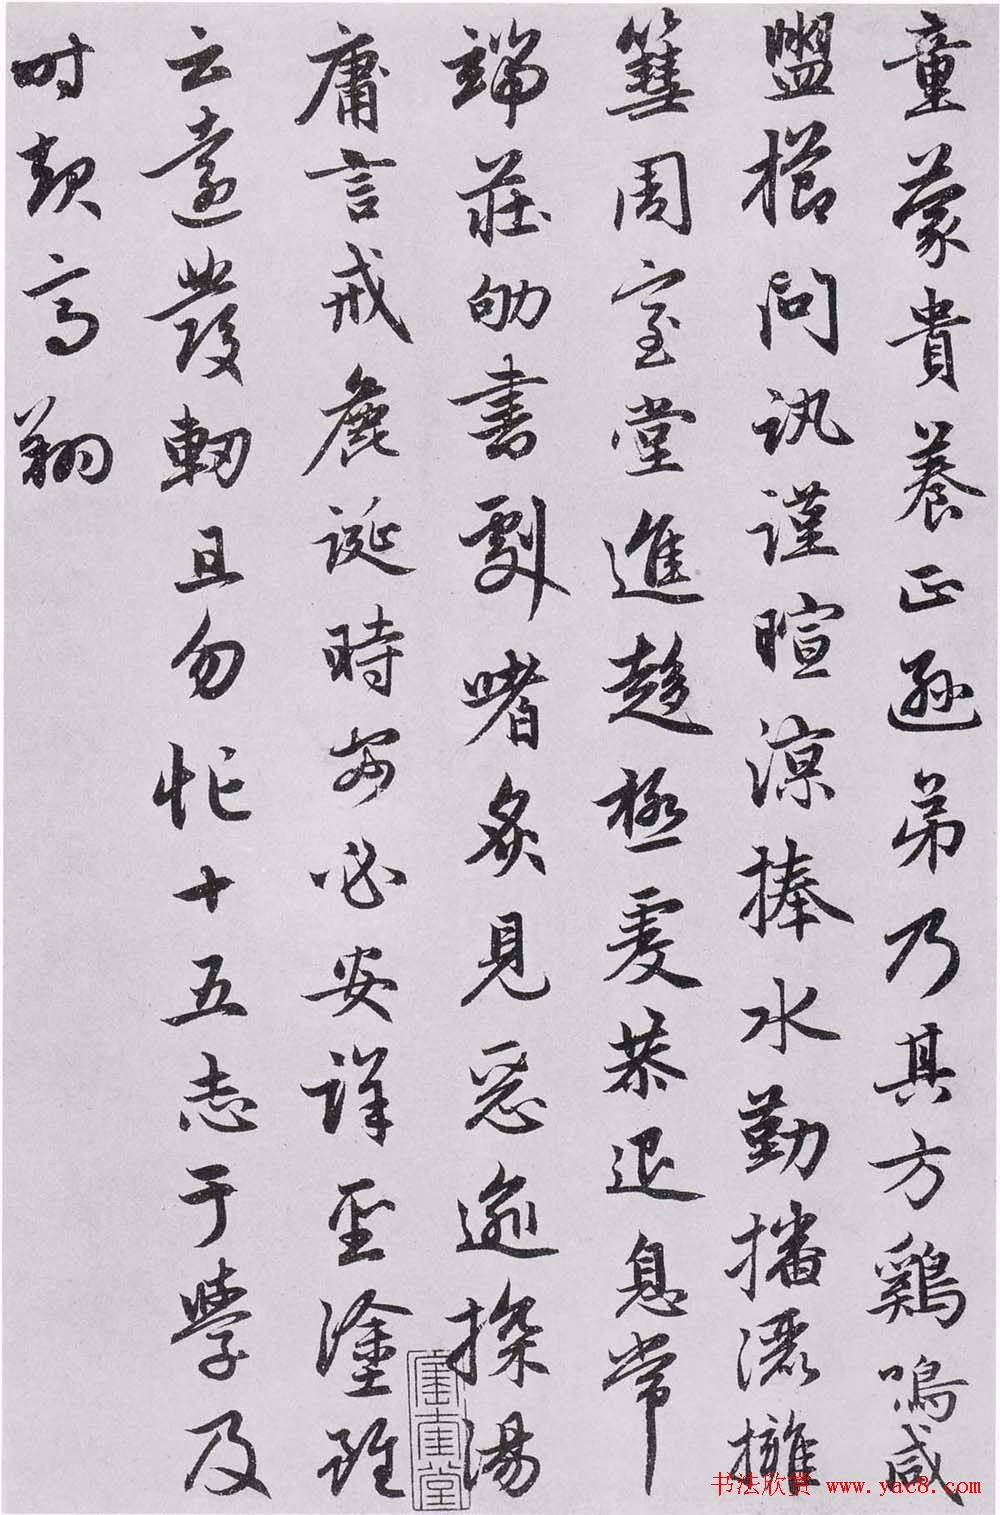 童蒙貴養正遜弟乃其方鷄鳴咸
盥櫛問訊謹暄涼捧水勤播灑擁
篲周室堂進趨極虔恭退息常
端莊劬書劇嗜炙見惡逾探湯
庸言戒麄誕時行必安詳聖塗雖
云遠發軔且勿忙十五志于學及
时起高翔
书法欣赏 www.yac8.com